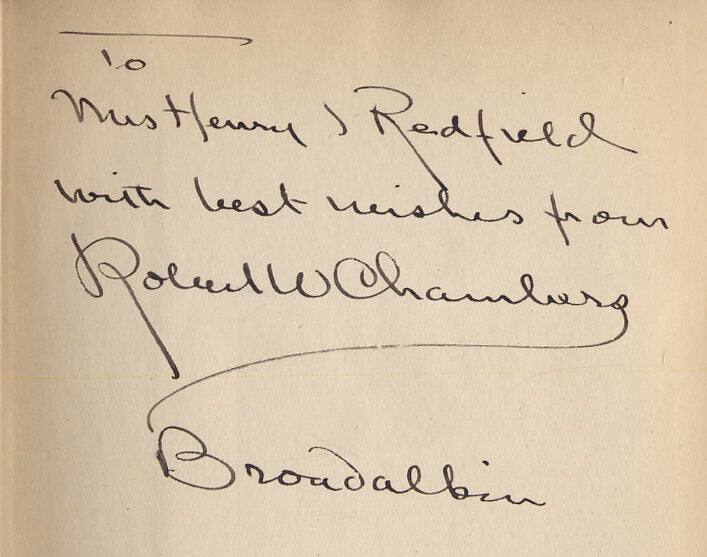 To
Mrs Henry J Redfield
with best wishes from
Robert W Chambers
Broadalbin